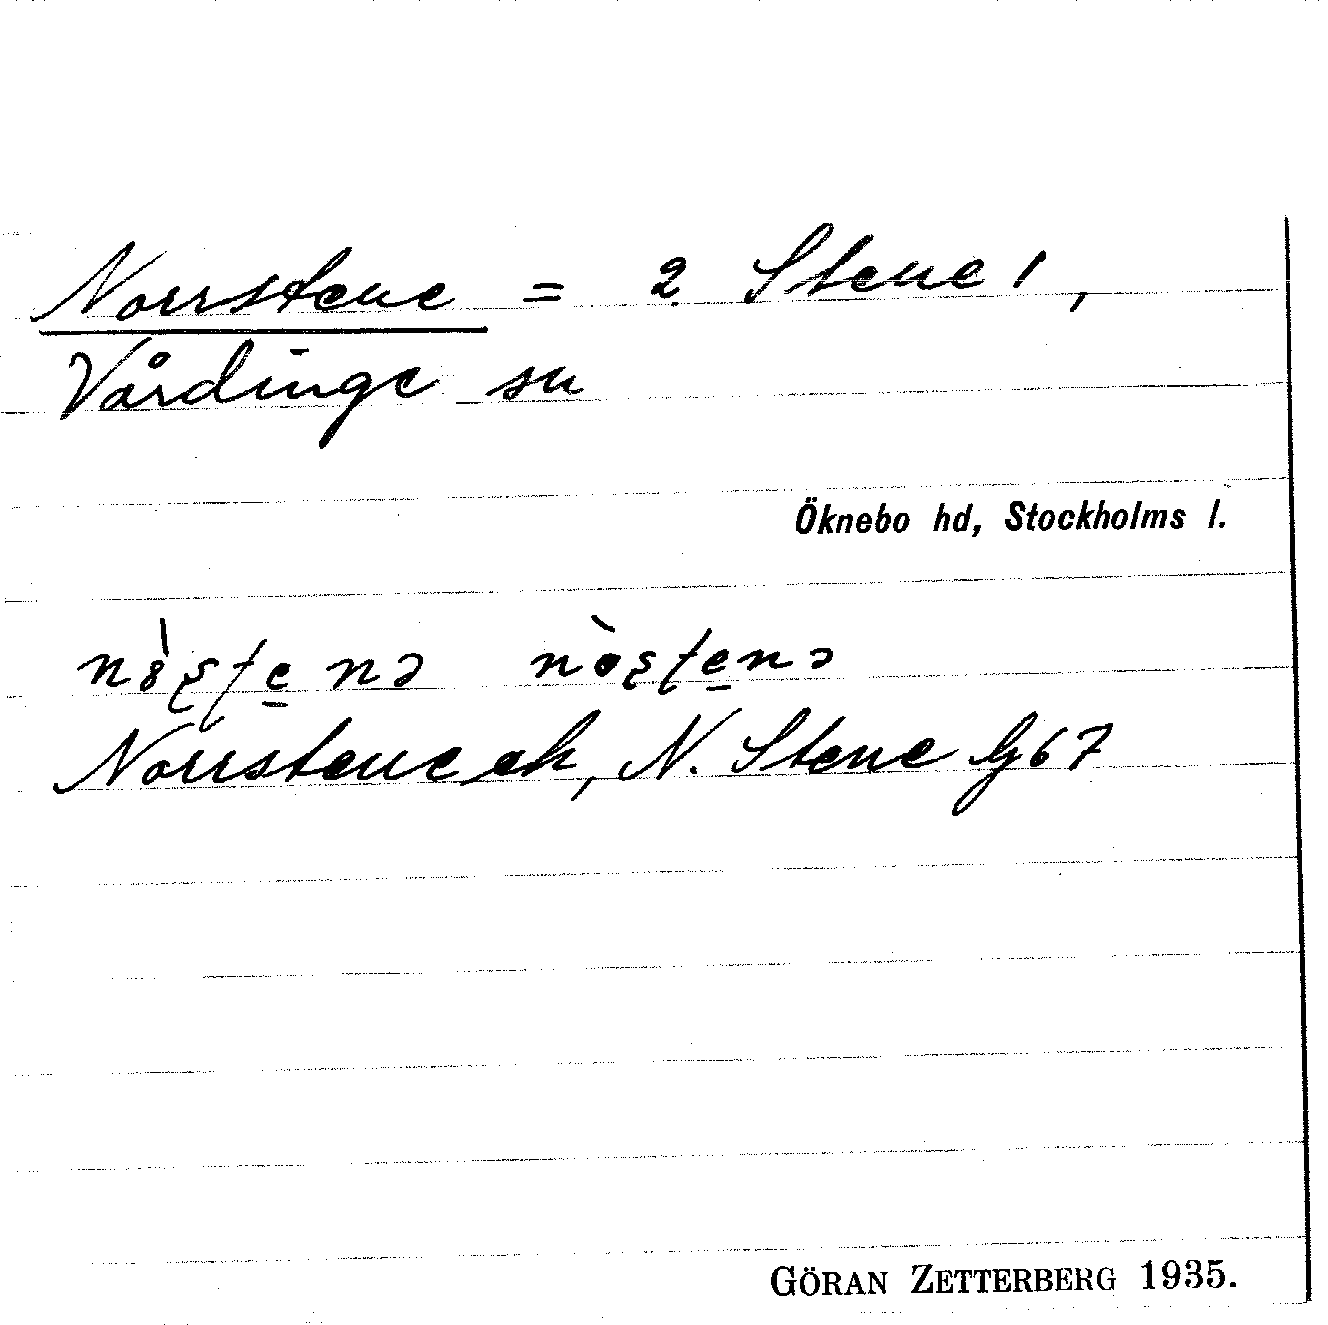 Norrstene = 2 Stene 1,
Vårdinge sn
Öknebo hd, Stockholms l.
Norrstene ek, N. Stene G67
GÖRAN ZETTERBERG 1935.